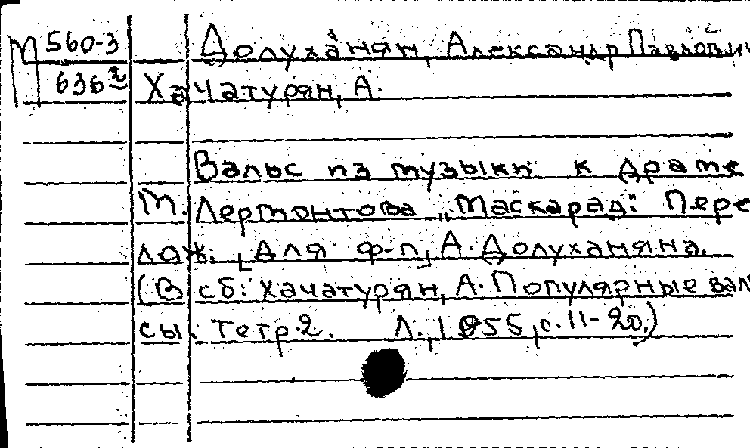 М 560-3 Долуханян, Александр Павлович
636² Хачатурян, А.
Вальс из музыки к драме
М. Лермонтова „Маскарад". Пере
лож. [для ф-п] А. Долуханяна.
(В сб: Хачатурян, А. Популярные валь
сы. Тетр. 2. Л., 1955, с. 11-20.)